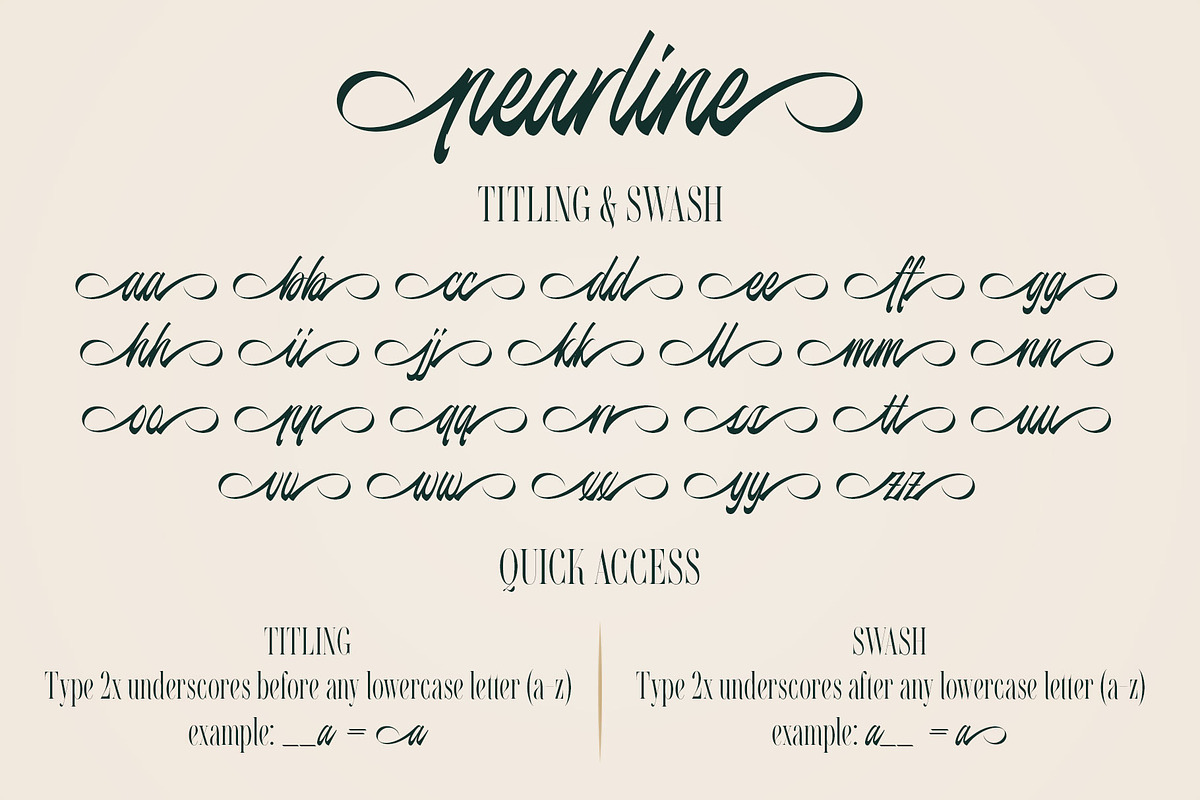 pearline
TITLING & SWASH
aa bb cc dd ee ff gg
hh ii jj kk ll mm nn
oo pp qq rr ss tt uu
vv ww xx yy zz
QUICK ACCESS
TITLING
Type 2x underscores before any lowercase letter (a-z)
example: __a = a
SWASH
Type 2x underscores after any lowercase letter (a-z)
example: a__ = a